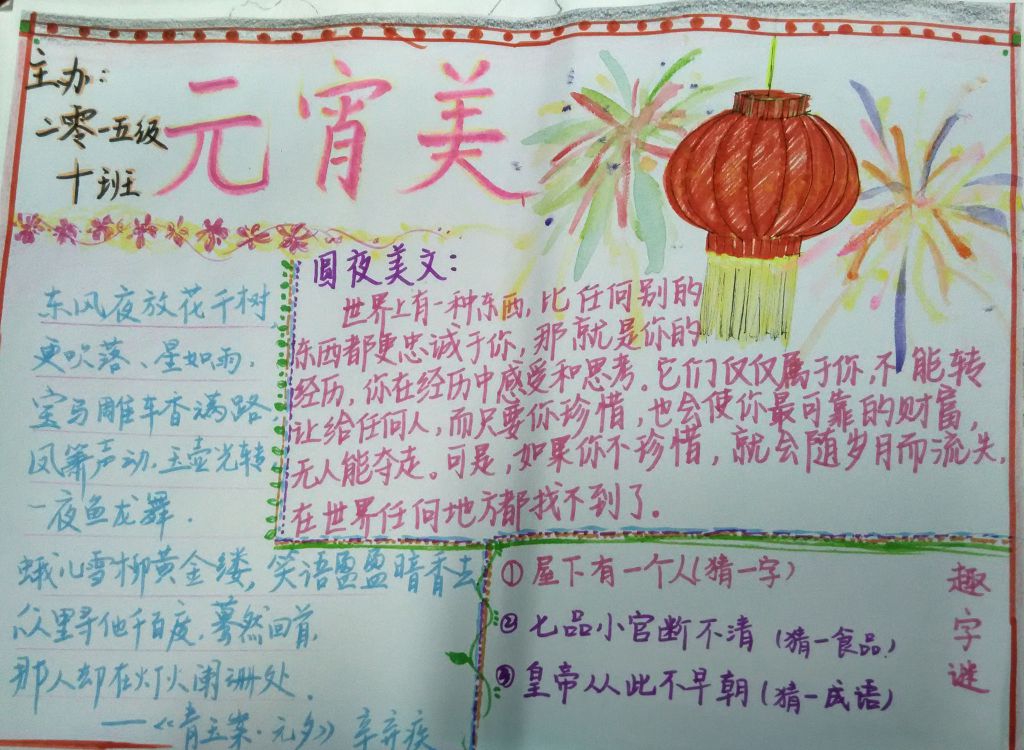 主办：
二零一五级
十班
元宵美
东风夜放花千树
更吹落、星如雨，
宝马雕车香满路
凤箫声动，玉壶光转
一夜鱼龙舞．
蛾儿雪柳黄金缕，笑语盈盈暗香去
众里寻他千百度，蓦然回首，
那人却在灯火阑珊处．
——《青玉案·元夕》辛弃疾
圆夜美文：
世界上有一种东西，比任何别的
东西都更忠诚于你，那就是你的
经历，你在经历中感受和思考。它们仅仅属于你，不能转
让给任何人，而只要你珍惜，也会使你最可靠的财富，
无人能夺走。可是，如果你不珍惜，就会随岁月而流失，
在世界任何地方都找不到了。
趣字谜
①屋下有一个人（猜一字）
②七品小官断不清（猜一食品）
③皇帝从此不早朝（猜一成语）